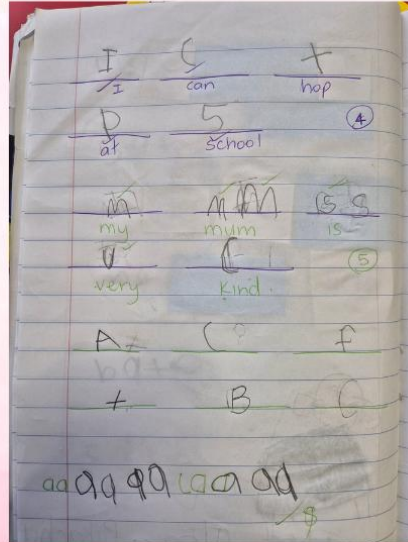 I C t
I can hop
p 5 4
at School
m m m is s
my mum is
v C
very kind. 5
A C f
t B C
aa a a a a a a a aa